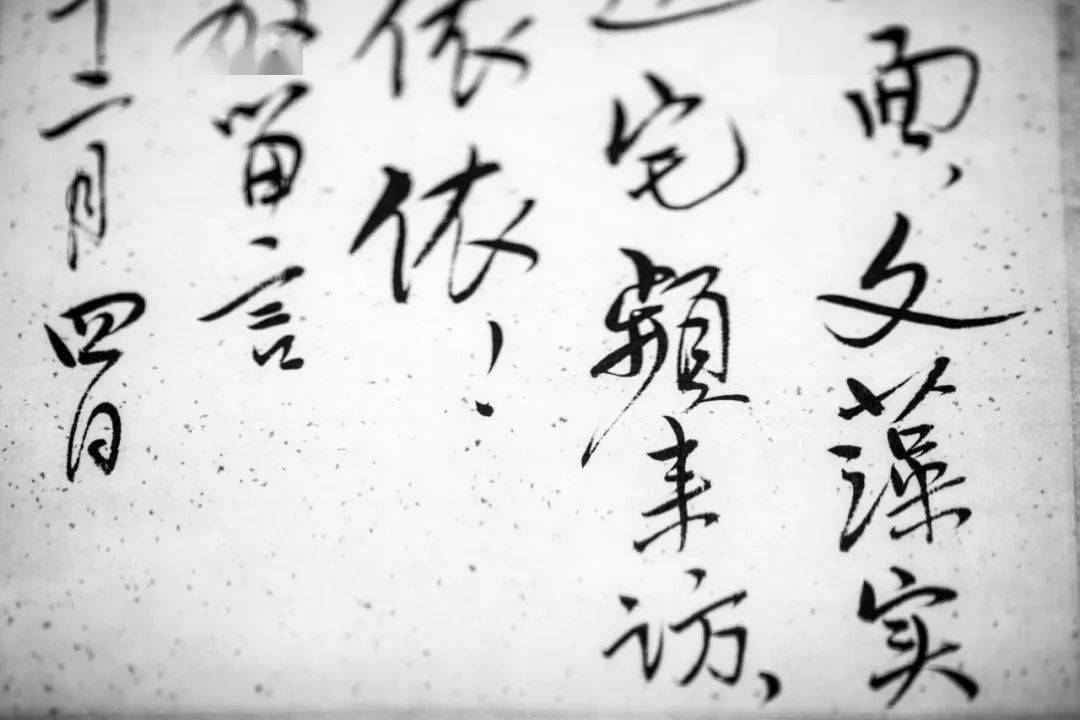 面、文藻实
宅頻来访、
依依！
留言
十二月四日